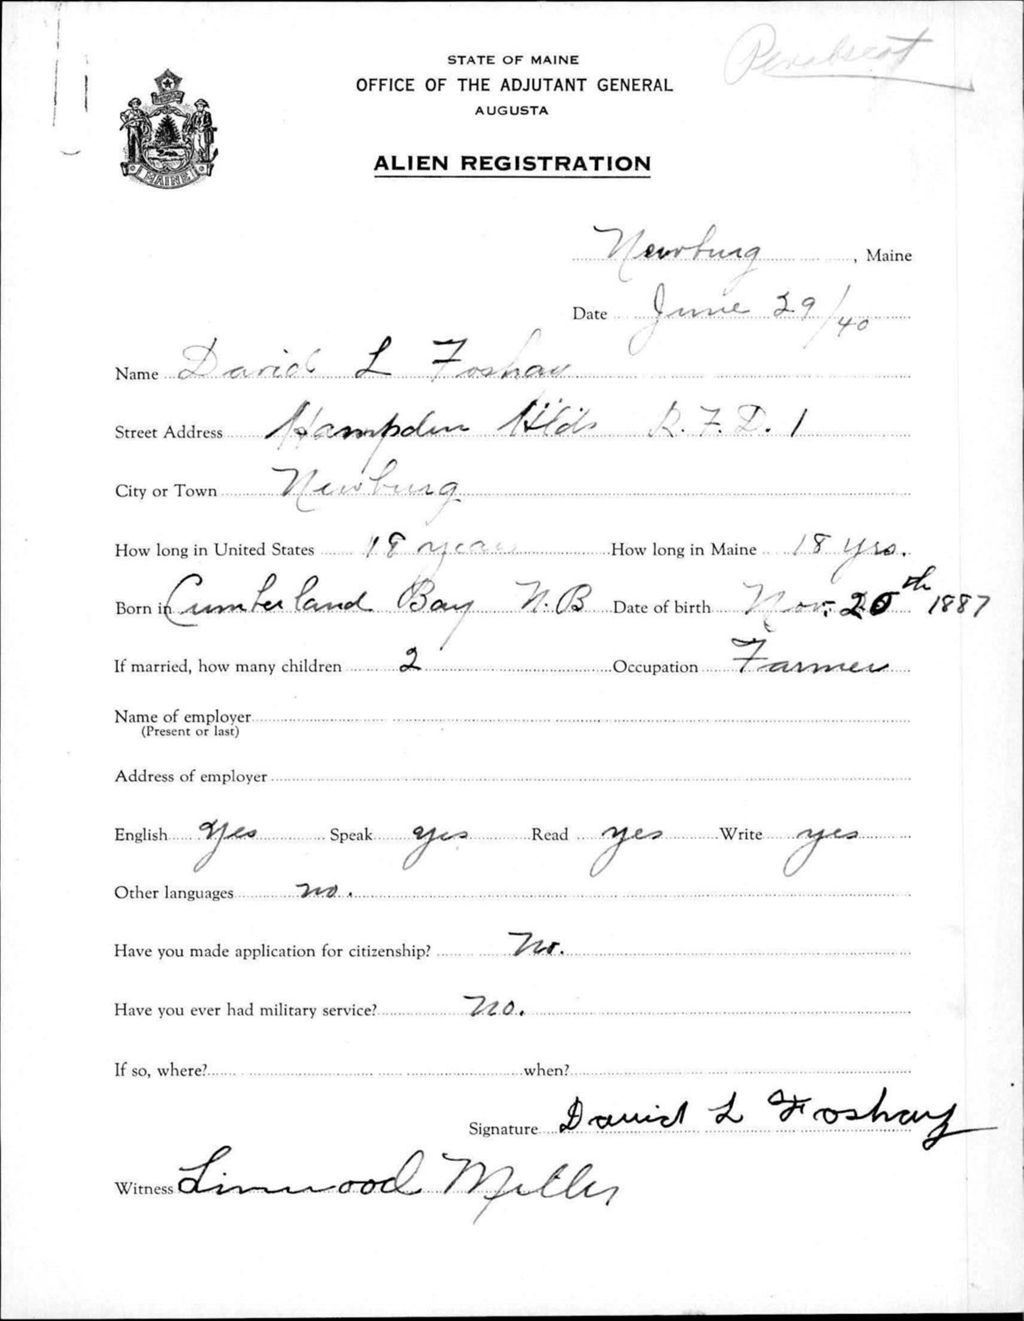 Penobscot
STATE OF MAINE
OFFICE OF THE ADJUTANT GENERAL
AUGUSTA
ALIEN REGISTRATION
MAINE
Newburg, Maine
Date June 29/40
Name David L Foshay
Street Address Hampden Hlds R.F.D. 1
City or Town Newburg
How long in United States 18 years How long in Maine 18 yrs.
Born in Cumberland Bay N.B Date of birth Nov. 20th 1887
If married, how many children 2 Occupation Farmer
Name of employer
(Present or last)
Address of employer
English Yes Speak yes Read yes Write yes
Other languages no.
Have you made application for citizenship? No.
Have you ever had military service? No.
If so, where? when?
Signature David L Foshay
Witness Linwood